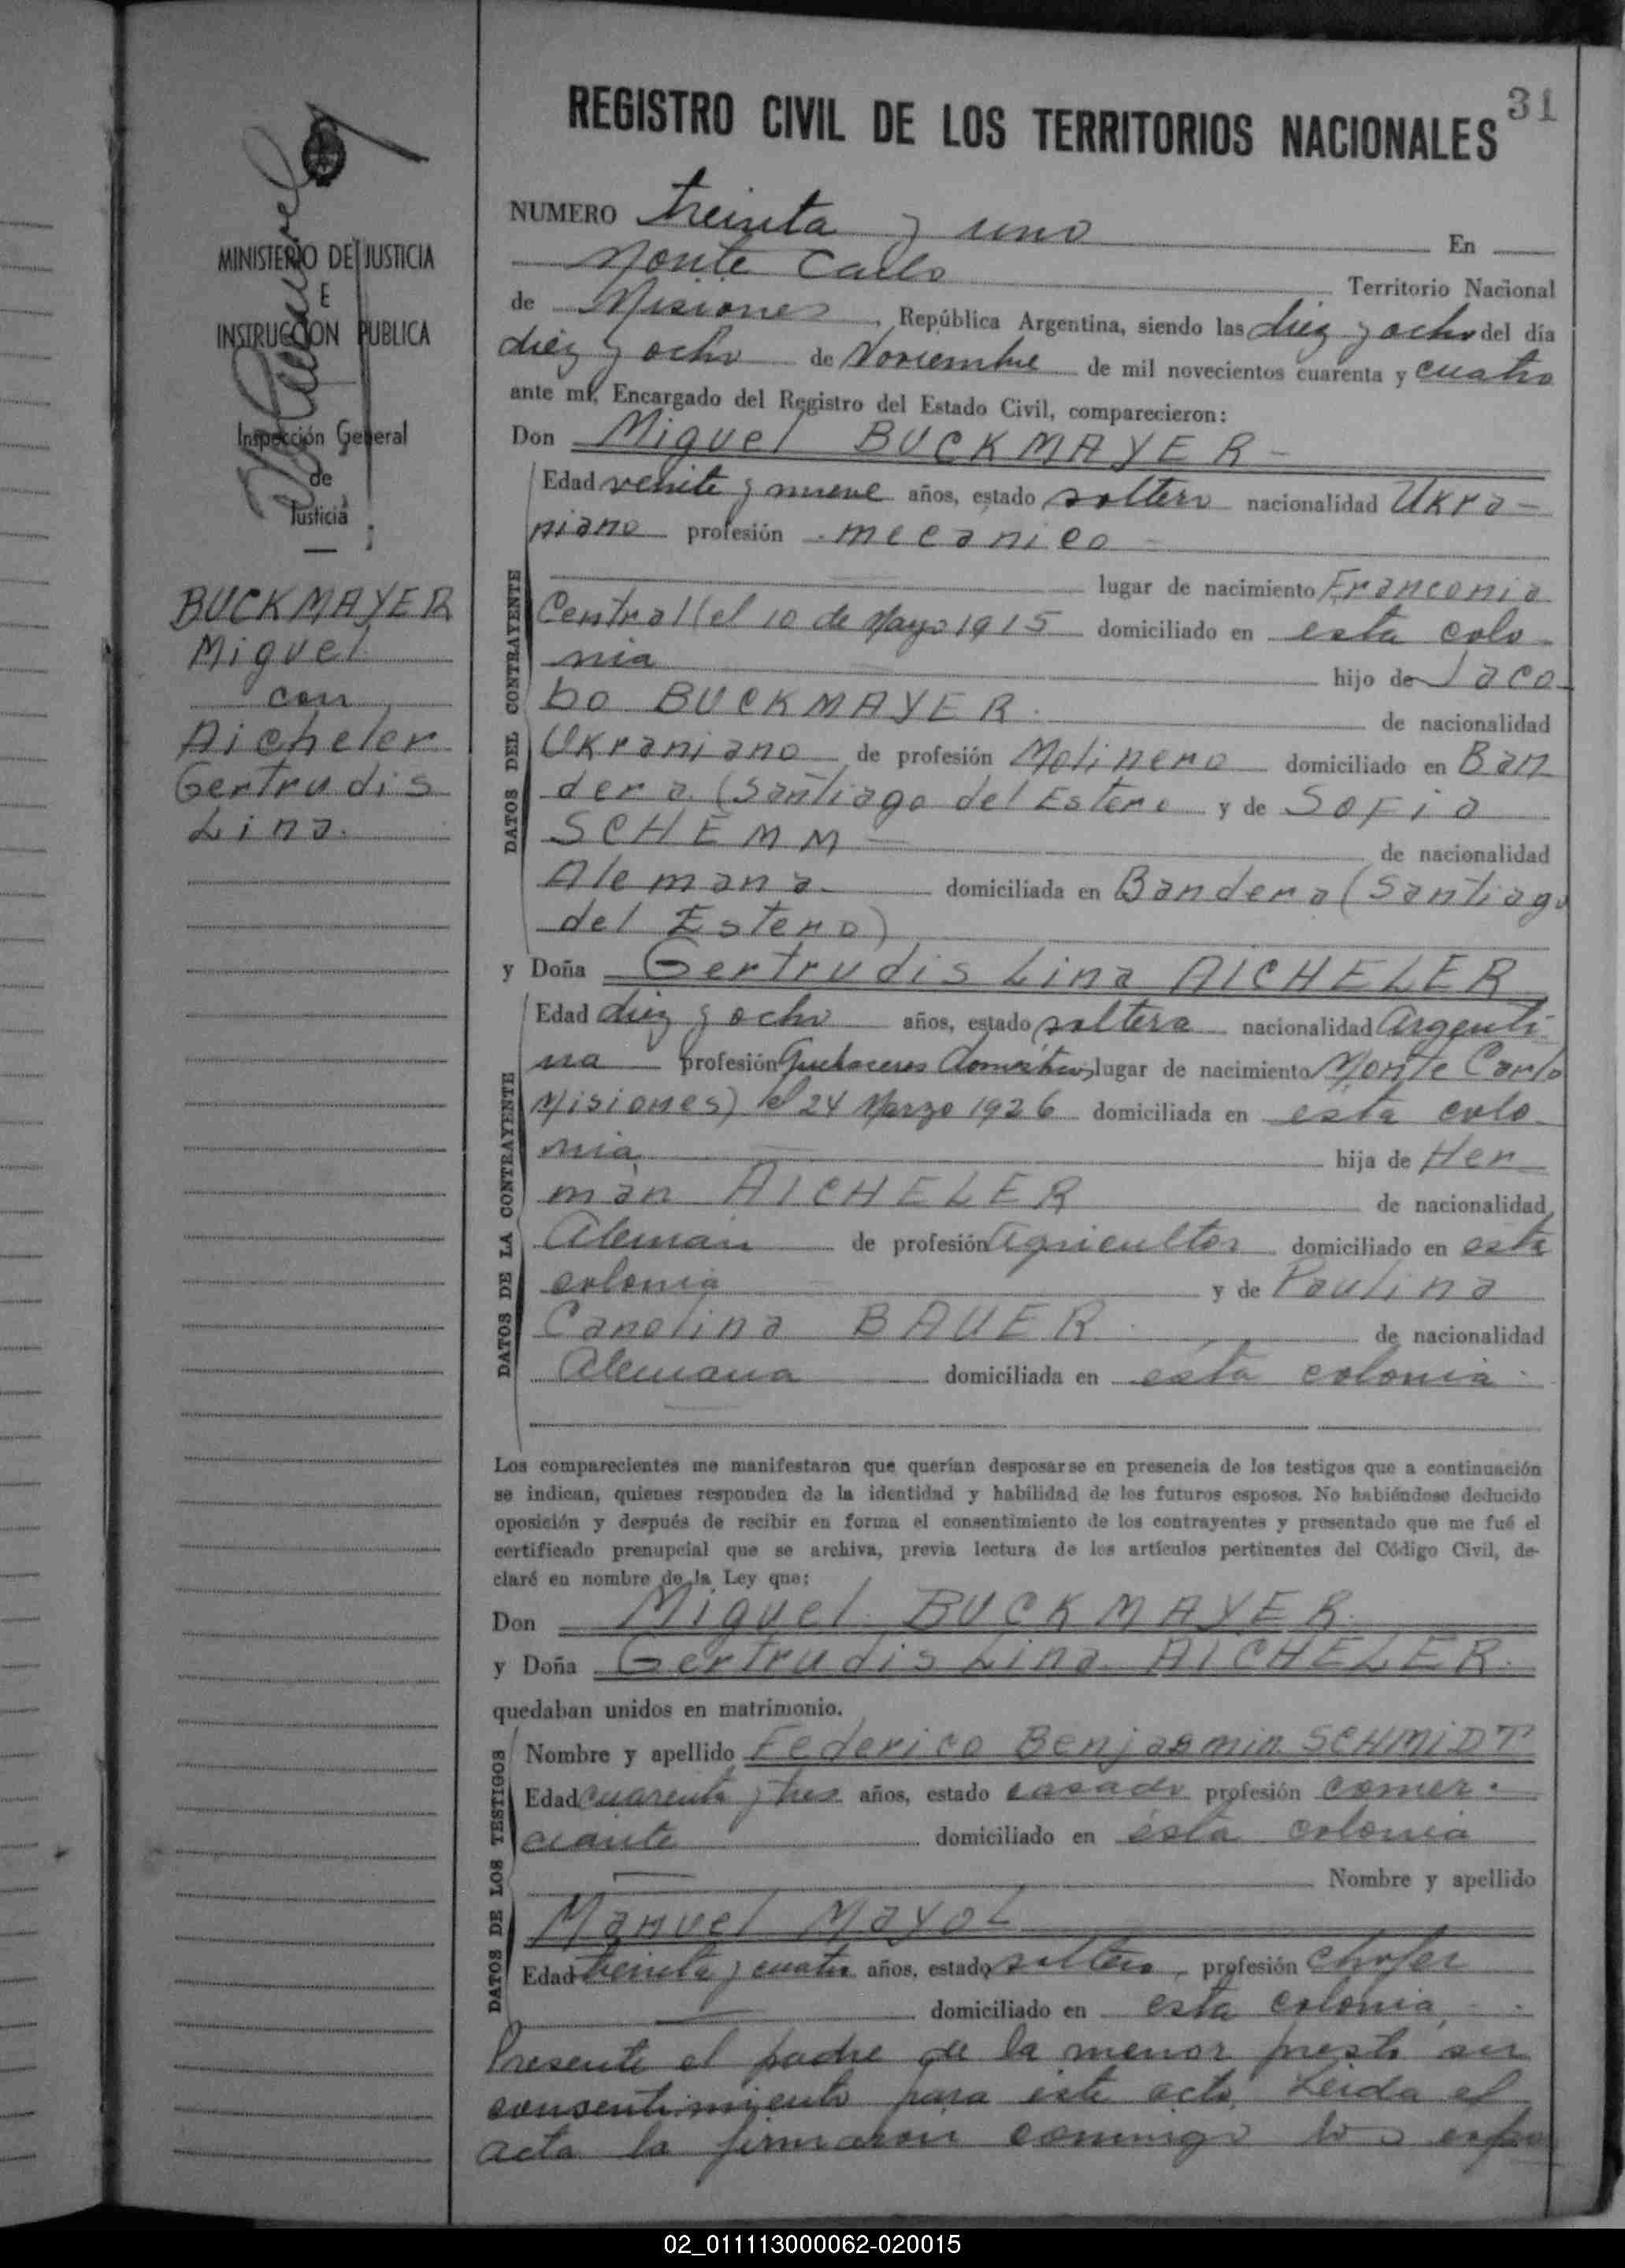 31
REGISTRO CIVIL DE LOS TERRITORIOS NACIONALES
MINISTERIO DE JUSTICIA
E
INSTRUCCION PUBLICA
Inspección General
de
Justicia
BUCKMAYER
Miguel
con
Aicheler
Gertrudis
Lina.
NUMERO treinta y uno En
Monte Carlo Territorio Nacional
de Misiones, República Argentina, siendo las diez y ocho del día
diez y ocho de Noviembre de mil novecientos cuarenta y cuatro
ante mí, Encargado del Registro del Estado Civil, comparecieron:
Don Miguel BUCKMAYER -
Edad veinte y nueve años, estado soltero nacionalidad Ukra-
niano profesión mecanico
lugar de nacimiento Franconia
Central (el 10 de Mayo 1915 domiciliado en esta colo-
nia hijo de Jaco-
bo BUCKMAYER. de nacionalidad
Ukraniano de profesión Molinero domiciliado en Ban
dera (Santiago del Estero y de Sofia
SCHEMM de nacionalidad
Alemana domiciliada en Bandera (Santiago
del Estero)
y Doña Gertrudis Lina AICHELER
Edad diez y ocho años, estado soltera nacionalidad Argenti-
na profesión Quehaceres domesticos, lugar de nacimiento Monte Carlo
Misiones) el 24 Marzo 1926 domiciliada en esta colo-
nia hija de Her-
man AICHELER de nacionalidad
Aleman de profesión agricultor domiciliado en esta
colonia y de Paulina
Carolina BAUER de nacionalidad
Alemana domiciliada en esta colonia
DATOS DEL CONTRAYENTE
DATOS DE LA CONTRAYENTE
Los comparecientes me manifestaron que querían desposarse en presencia de los testigos que a continuación
se indican, quienes responden de la identidad y habilidad de los futuros esposos. No habiéndose deducido
oposición y después de recibir en forma el consentimiento de los contrayentes y presentado que me fué el
certificado prenupcial que se archiva, previa lectura de los artículos pertinentes del Código Civil, de-
claré en nombre de la Ley que:
Don Miguel BUCKMAYER.
y Doña Gertrudis Lina AICHELER.
quedaban unidos en matrimonio.
DATOS DE LOS TESTIGOS
Nombre y apellido Federico Benjasmin SCHMIDT
Edad cuarenta y tres años, estado casado profesión comer-
ciante domiciliado en esta colonia
Nombre y apellido
Manuel MAYOL
Edad treinta y cuatro años, estado soltero, profesión chofer
domiciliado en esta colonia
Presente el padre de la menor prestó su
consentimiento para este acto. Leida el
acta la firmaron conmigo los espo
02_011113000062-020015